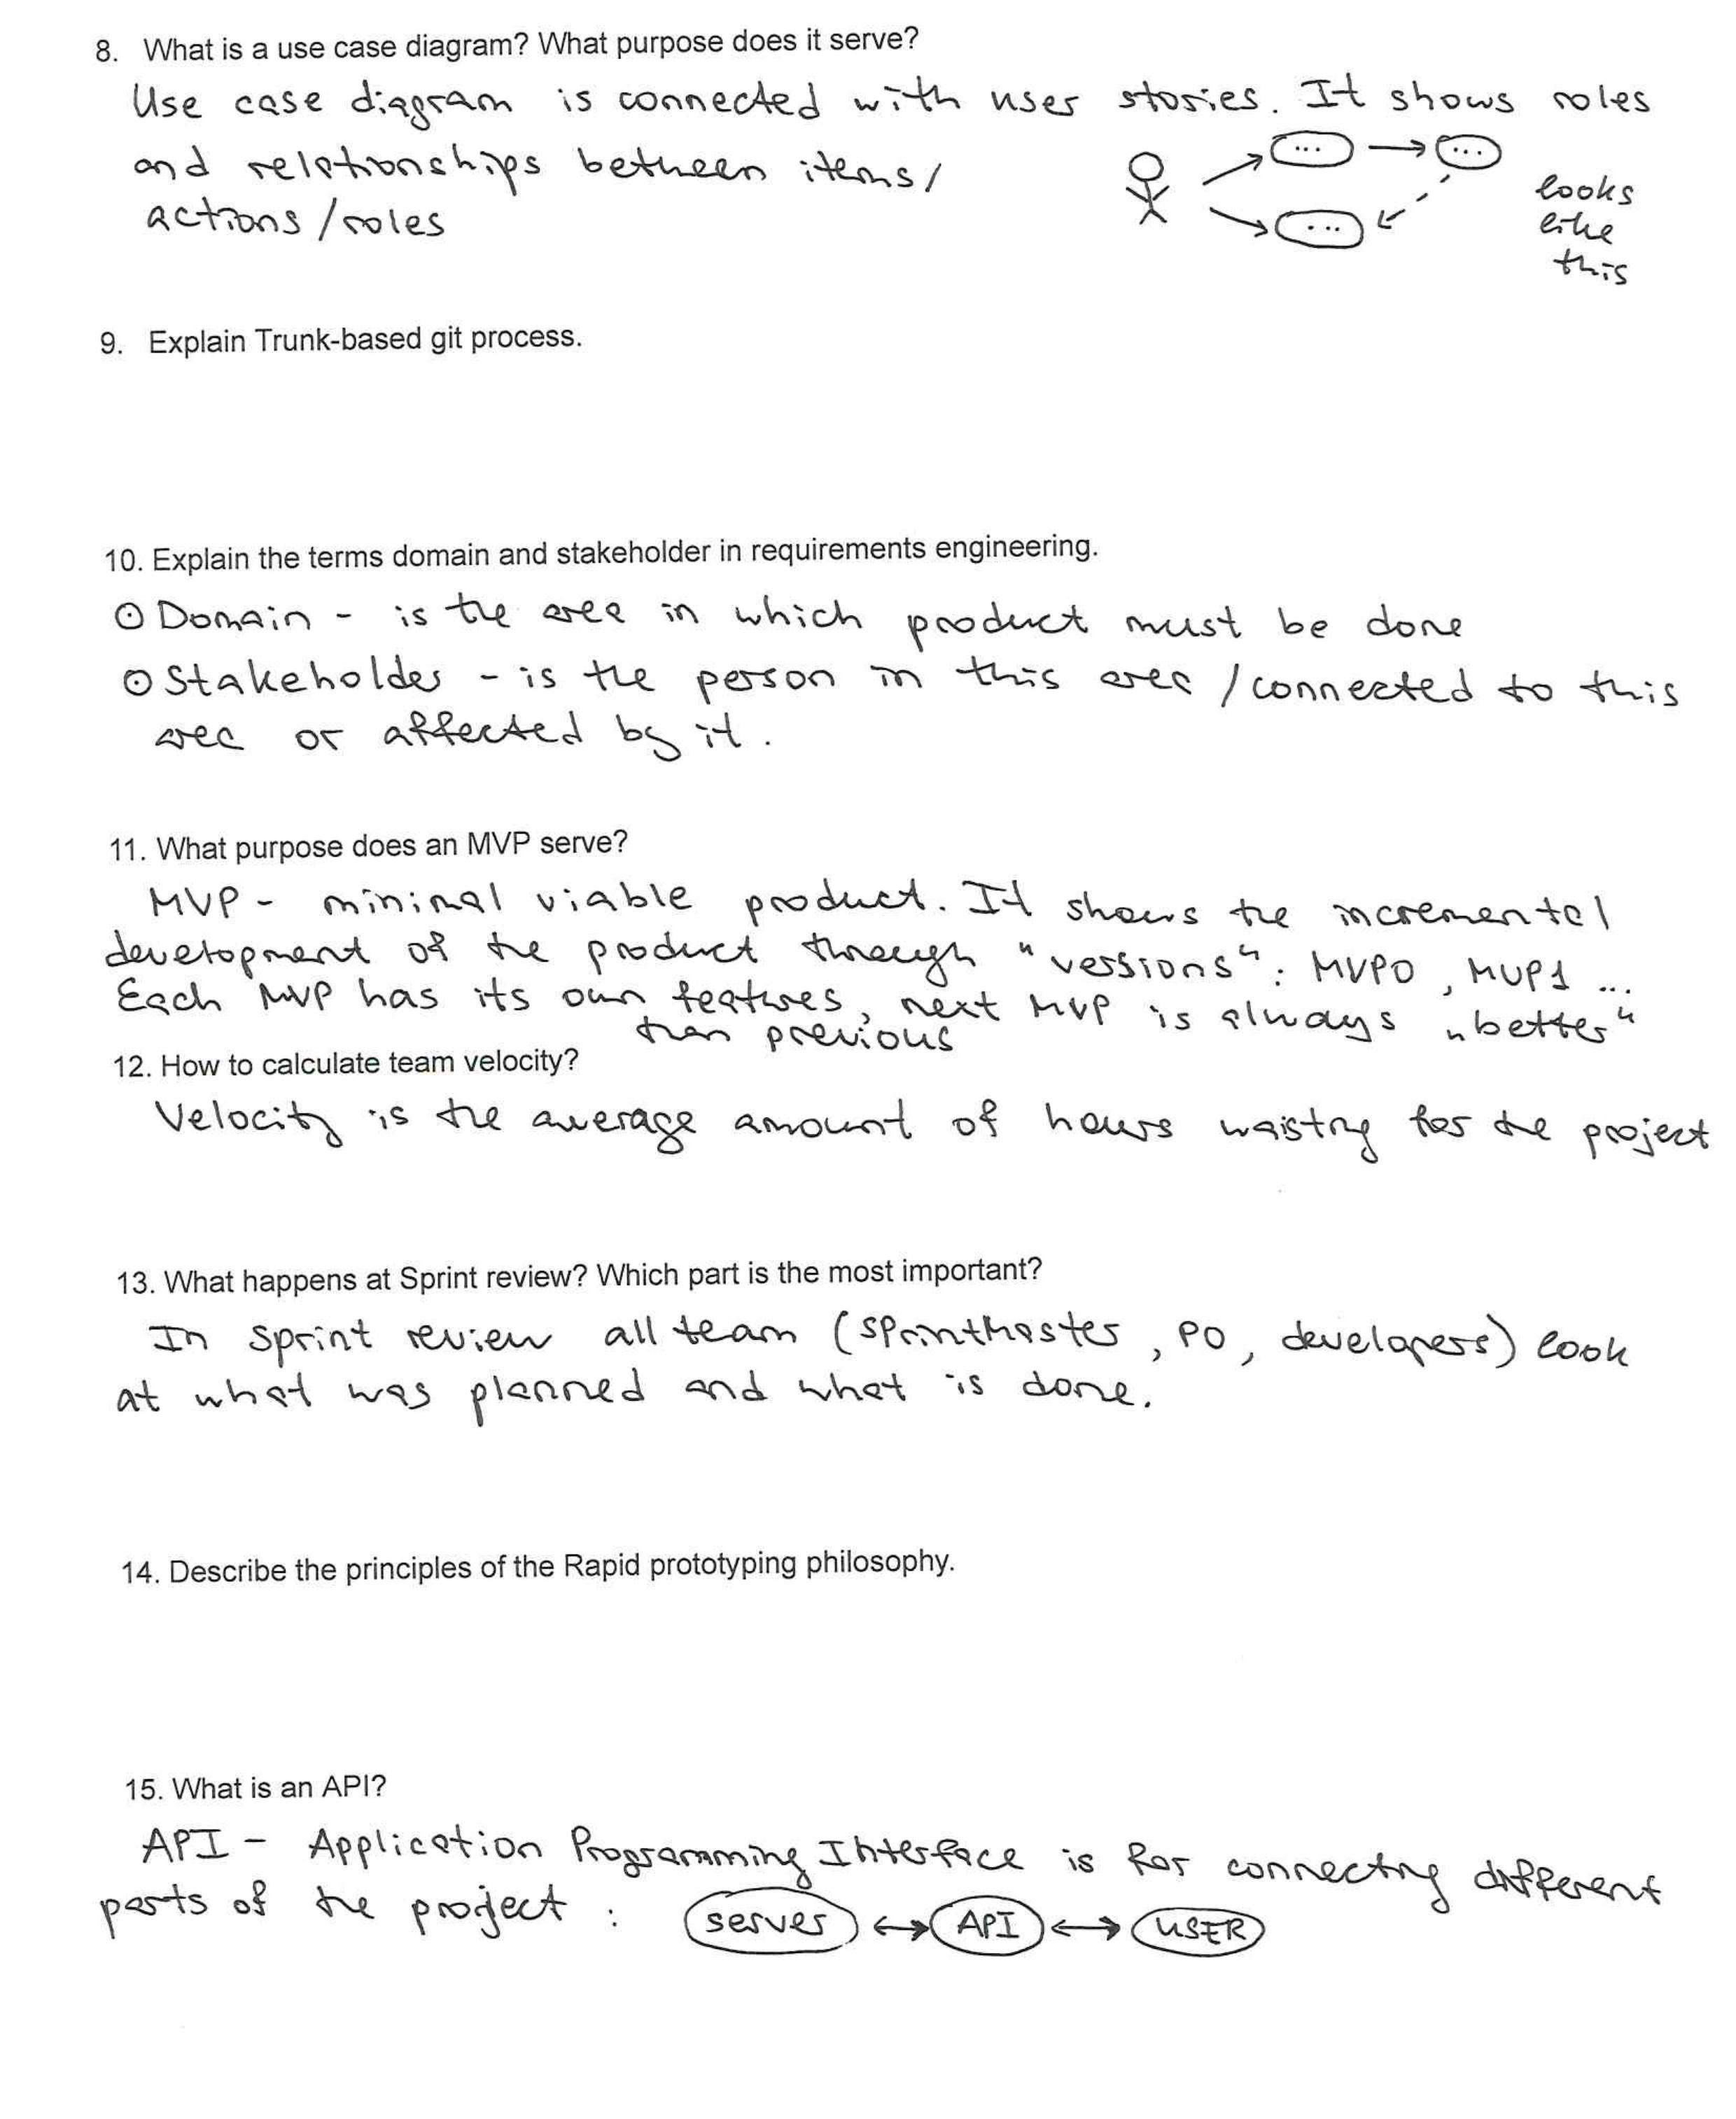 8. What is a use case diagram? What purpose does it serve?
Use case diagram is connected with user stories. It shows roles
and relationships between items/
actions/roles
... ...
...
looks
like
this
9. Explain Trunk-based git process.
10. Explain the terms domain and stakeholder in requirements engineering.
Domain - is the area in which product must be done
Stakeholder - is the person in this area / connected to this
area or affected by it.
11. What purpose does an MVP serve?
MVP - minimal viable product. It shows the incremental
development of the product through "versions": MVP0, MVP1 ...
Each MVP has its own features, next MVP is always „better“
than previous
12. How to calculate team velocity?
Velocity is the average amount of hours waisting for the project
13. What happens at Sprint review? Which part is the most important?
In sprint review all team (SprintMaster, PO, developers) look
at what was planned and what is done.
14. Describe the principles of the Rapid prototyping philosophy.
15. What is an API?
API - Application Programming Interface is for connecting different
parts of the project : server ↔ API ↔ USER